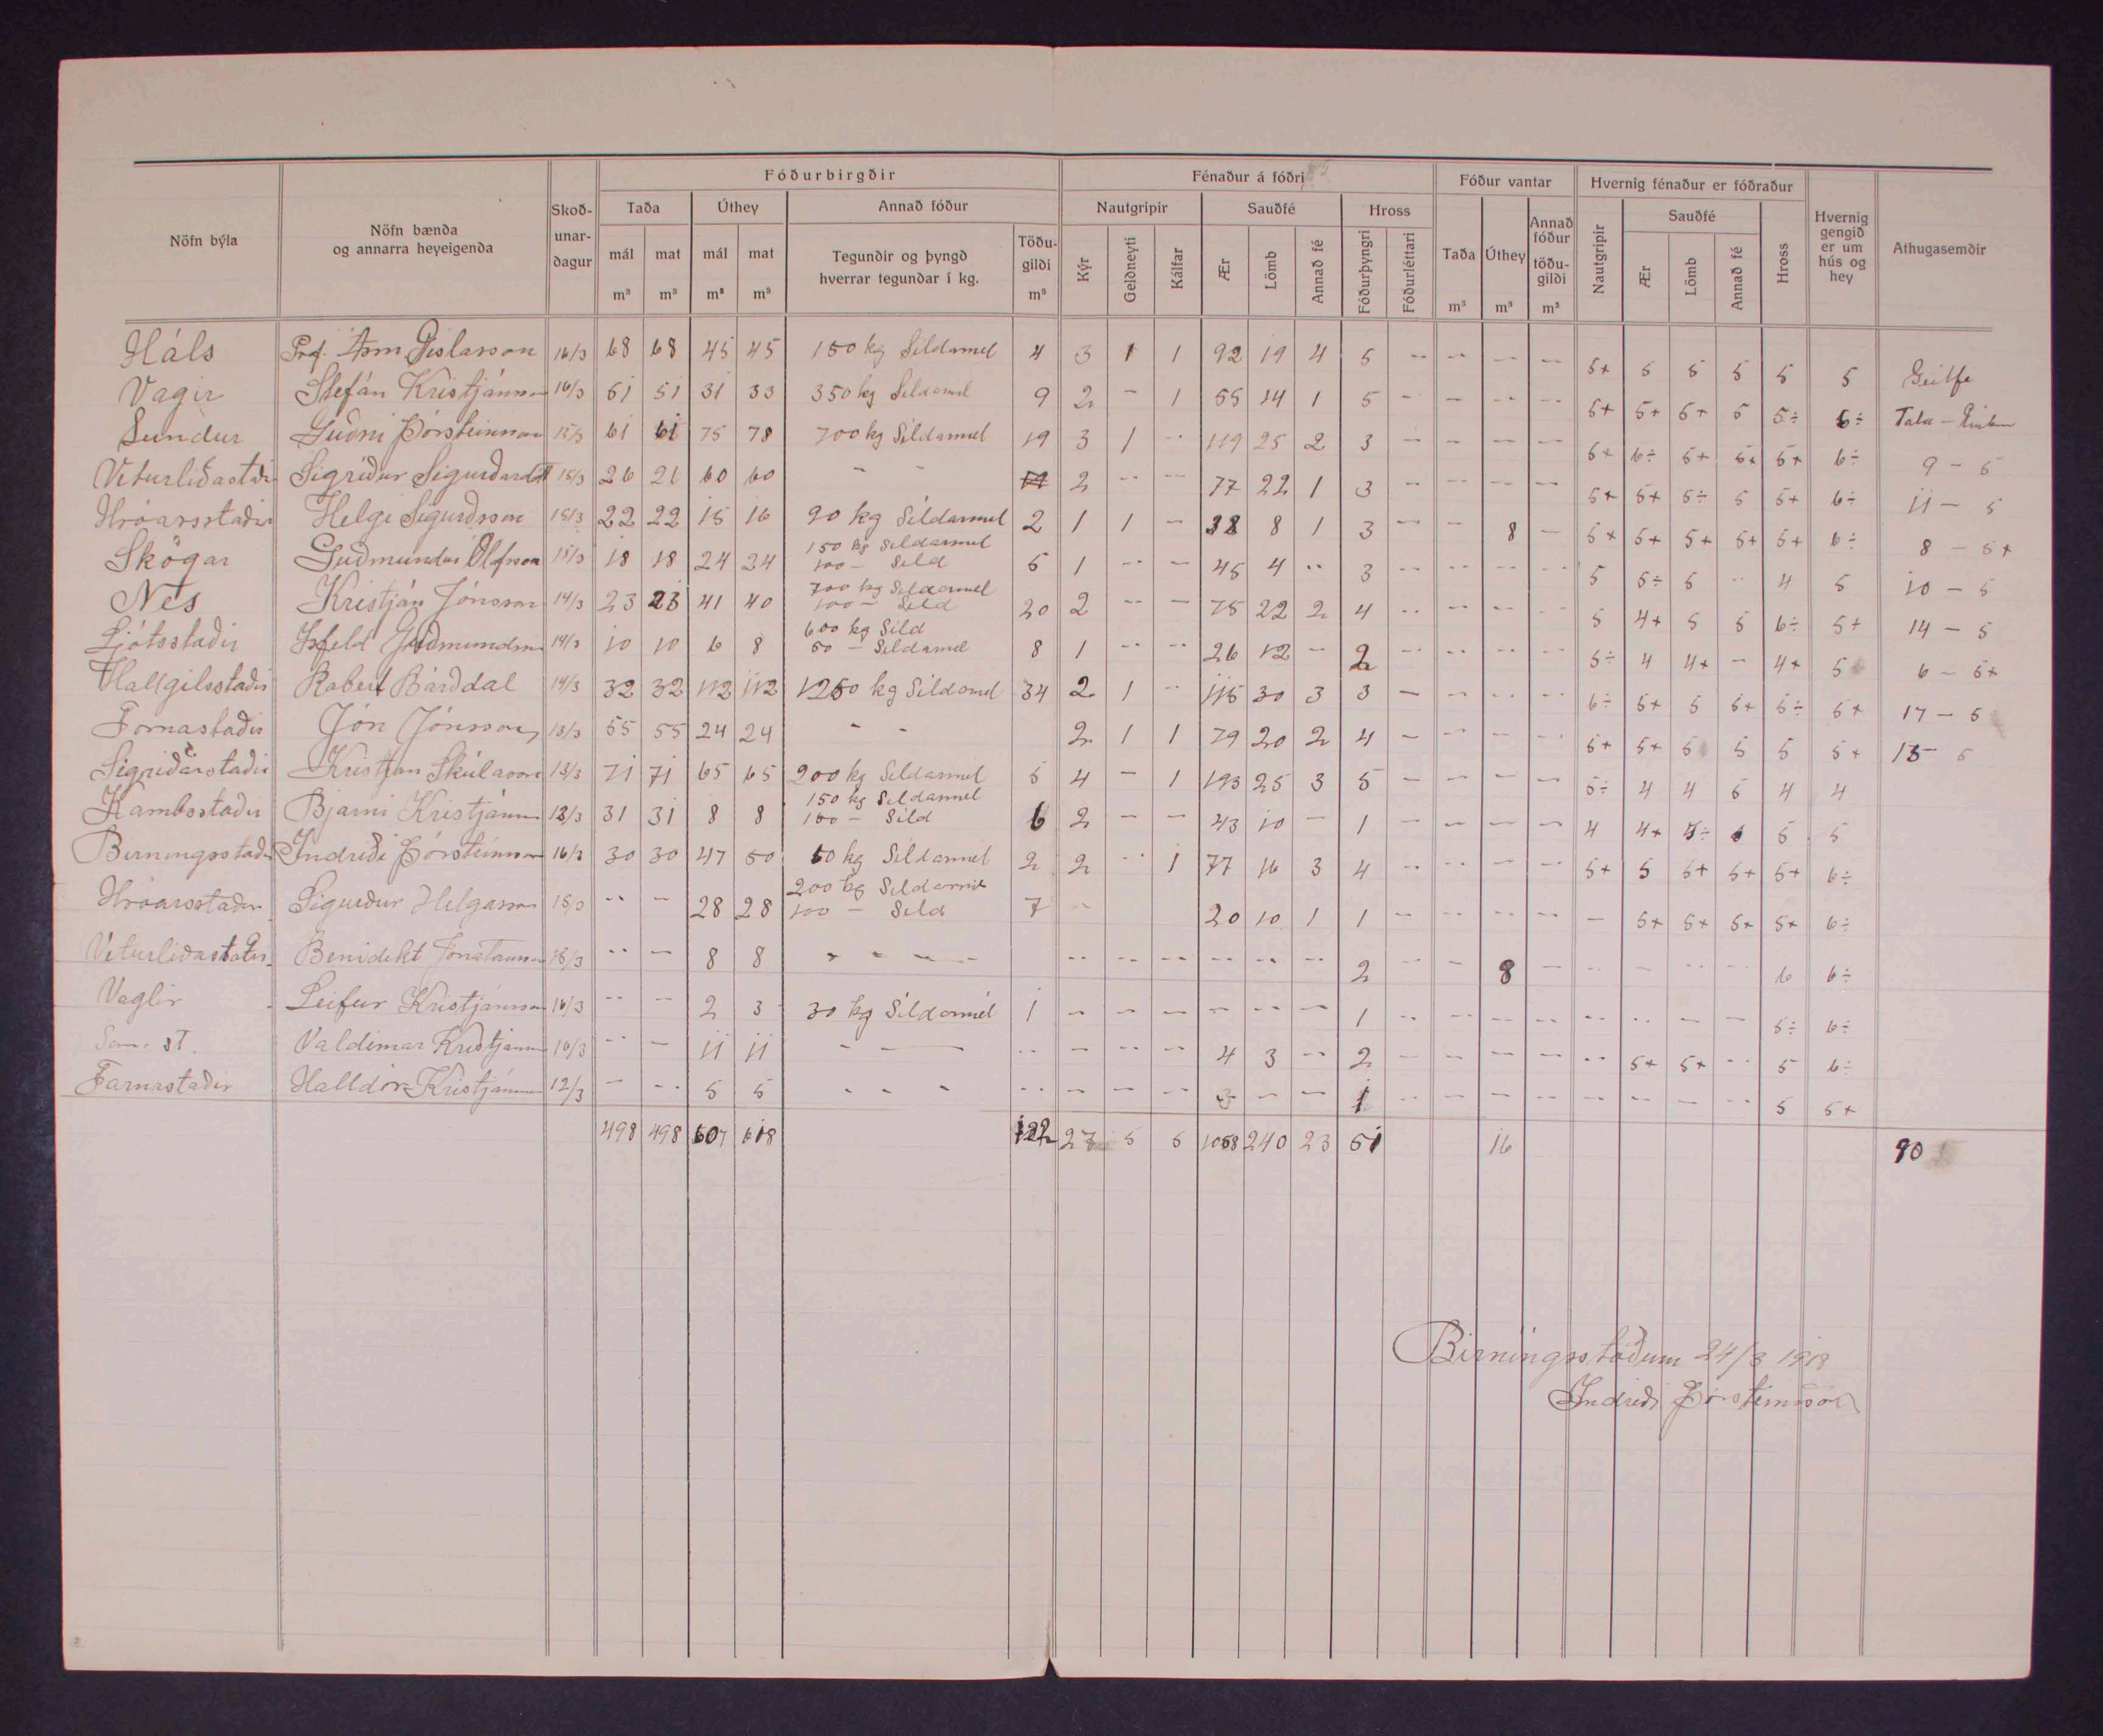 Fóðurbirgðir Fénaður á fóðri Fóður vantar Hvernig fénaður er fóðraður
Nöfn býla Nöfn bænda og annarra heyeigenda Skoðunardagur Taða Úthey Annað fóður Nautgripir Sauðfé Hross Taða Úthey Annað fóður töðugildi Nautgripir Sauðfé Hross Hvernig gengið er um hús og hey Athugasemdir
mál m³ mat m³ mál m³ mat m³ Tegundir og þyngd hverrar tegundar í kg. Töðugildi m³ Kýr Geldneyti Kálfar Ær Lömb Annað fé Fóðurþyngri Fóðurléttari m³ m³ m³ Ær Lömb Annað fé
Háls Prof. Ásm Gíslason 16/3 68 68 45 45 150 kg Síldarmel 4 3 1 1 92 19 4 5 -- -- -- -- 5+ 5 5 5 5 5 Geitfé
Vagir Stefán Kristjánsson 16/3 51 51 31 33 350 kg Síldarmel 9 2 - 1 55 14 1 5 - - -- -- 5+ 5+ 5+ 5 5÷ 6÷ Tala -
Lundur Guðni Þórsteinsson 15/3 61 61 75 78 700 kg Síldarmel 19 3 1 -- 119 25 2 3 - - - - 5+ 6÷ 5+ 5+ 5+ 6÷ 9 - 5
Veturliðastaðir Sigríður Sigurðardótt 15/3 26 26 60 60 - - 2 -- -- 77 22 1 3 -- -- -- -- 5+ 5+ 5÷ 5 5+ 6÷ 11 - 5
Hróarsstaðir Helgi Sigurðsson 15/3 22 22 15 16 90 kg Síldarmel 2 1 1 - 38 8 1 3 - - 8 - 5+ 5+ 5+ 5+ 5+ 6÷ 8 - 5+
Skógar Guðmundur Ólafsson 15/3 18 18 24 24 150 kg Síldarmel 5 1 -- - 45 4 -- 3 -- -- -- -- 5 5÷ 5 -- 4 5 10 - 5
100 - Síld
Nes Kristján Jónsson 14/3 23 23 41 40 700 kg Síldarmel 20 2 -- - 75 22 2 4 -- -- -- -- 5 4+ 5 5 6÷ 5+ 14 - 5
100 - Síld
Ljótsstaðir Ísfeld Guðmundsson 14/3 10 10 6 8 600 kg Síld 8 1 -- -- 26 12 - 2 -- -- -- -- 5÷ 4 4+ - 4+ 5 6 - 5+
50 - Síldarmel
Hallgilsstaðir Robert Bárðdal 14/3 32 32 112 112 1250 kg Síldarmel 34 2 1 -- 115 30 3 3 - -- -- -- 6÷ 5+ 5 5+ 5÷ 5+ 17 - 5
Fornastaðir Jón Jónsson 13/3 55 55 24 24 - - 2 1 1 79 20 2 4 - -- -- -- 5+ 5+ 5 5 5 5+ 15 - 5
Sigriðarstaðir Kristján Skúlason 13/3 71 71 65 65 200 kg Síldarmel 5 4 - 1 193 25 3 5 - - - - 5÷ 4 4 5 4 4
Kambsstaðir Bjarni Kristjánsson 13/3 31 31 8 8 150 kg Síldarmel 6 2 - - 43 10 - 1 - - - - 4 4+ 5÷ 5 5
100 - Síld
Birningsstaðir Indriði Þórsteinsson 16/3 30 30 47 50 50 kg Síldarmel 2 2 -- 1 77 16 3 4 -- -- - -- 5+ 5 5+ 5+ 5+ 6÷
Hróarsstaðir Sigurður Helgason 15/3 -- - 28 28 200 kg Síldarmel 7 -- 20 10 1 1 -- -- -- - - 5+ 5+ 5+ 5+ 6÷
100 - Síld
Veturliðastaðir Benidikt Jónatansson 15/3 -- - 8 8 - - - - -- -- -- -- -- -- 2 -- - 8 - -- - -- -- 6 6÷
Vaglir Leifur Kristjánsson 16/3 -- -- 2 3 30 kg Síldarmél 1 - - - - - - 1 -- -- -- -- -- -- - - 5÷ 6÷
Sam. st. Valdimar Kristjánsson 16/3 -- - 11 11 - - -- - -- -- 4 3 -- 2 - - -- -- -- 5+ 5+ -- 5 6÷
Farnastaðir Halldór Kristjánsson 12/3 - -- 5 5 - - - -- - - - - - 1 -- - - -- -- -- - -- 5 5+
498 498 607 618 122 27 5 5 1068 240 23 51 16 90
Birningsstöðum 24/3 1918
Indriði Þórsteinsson